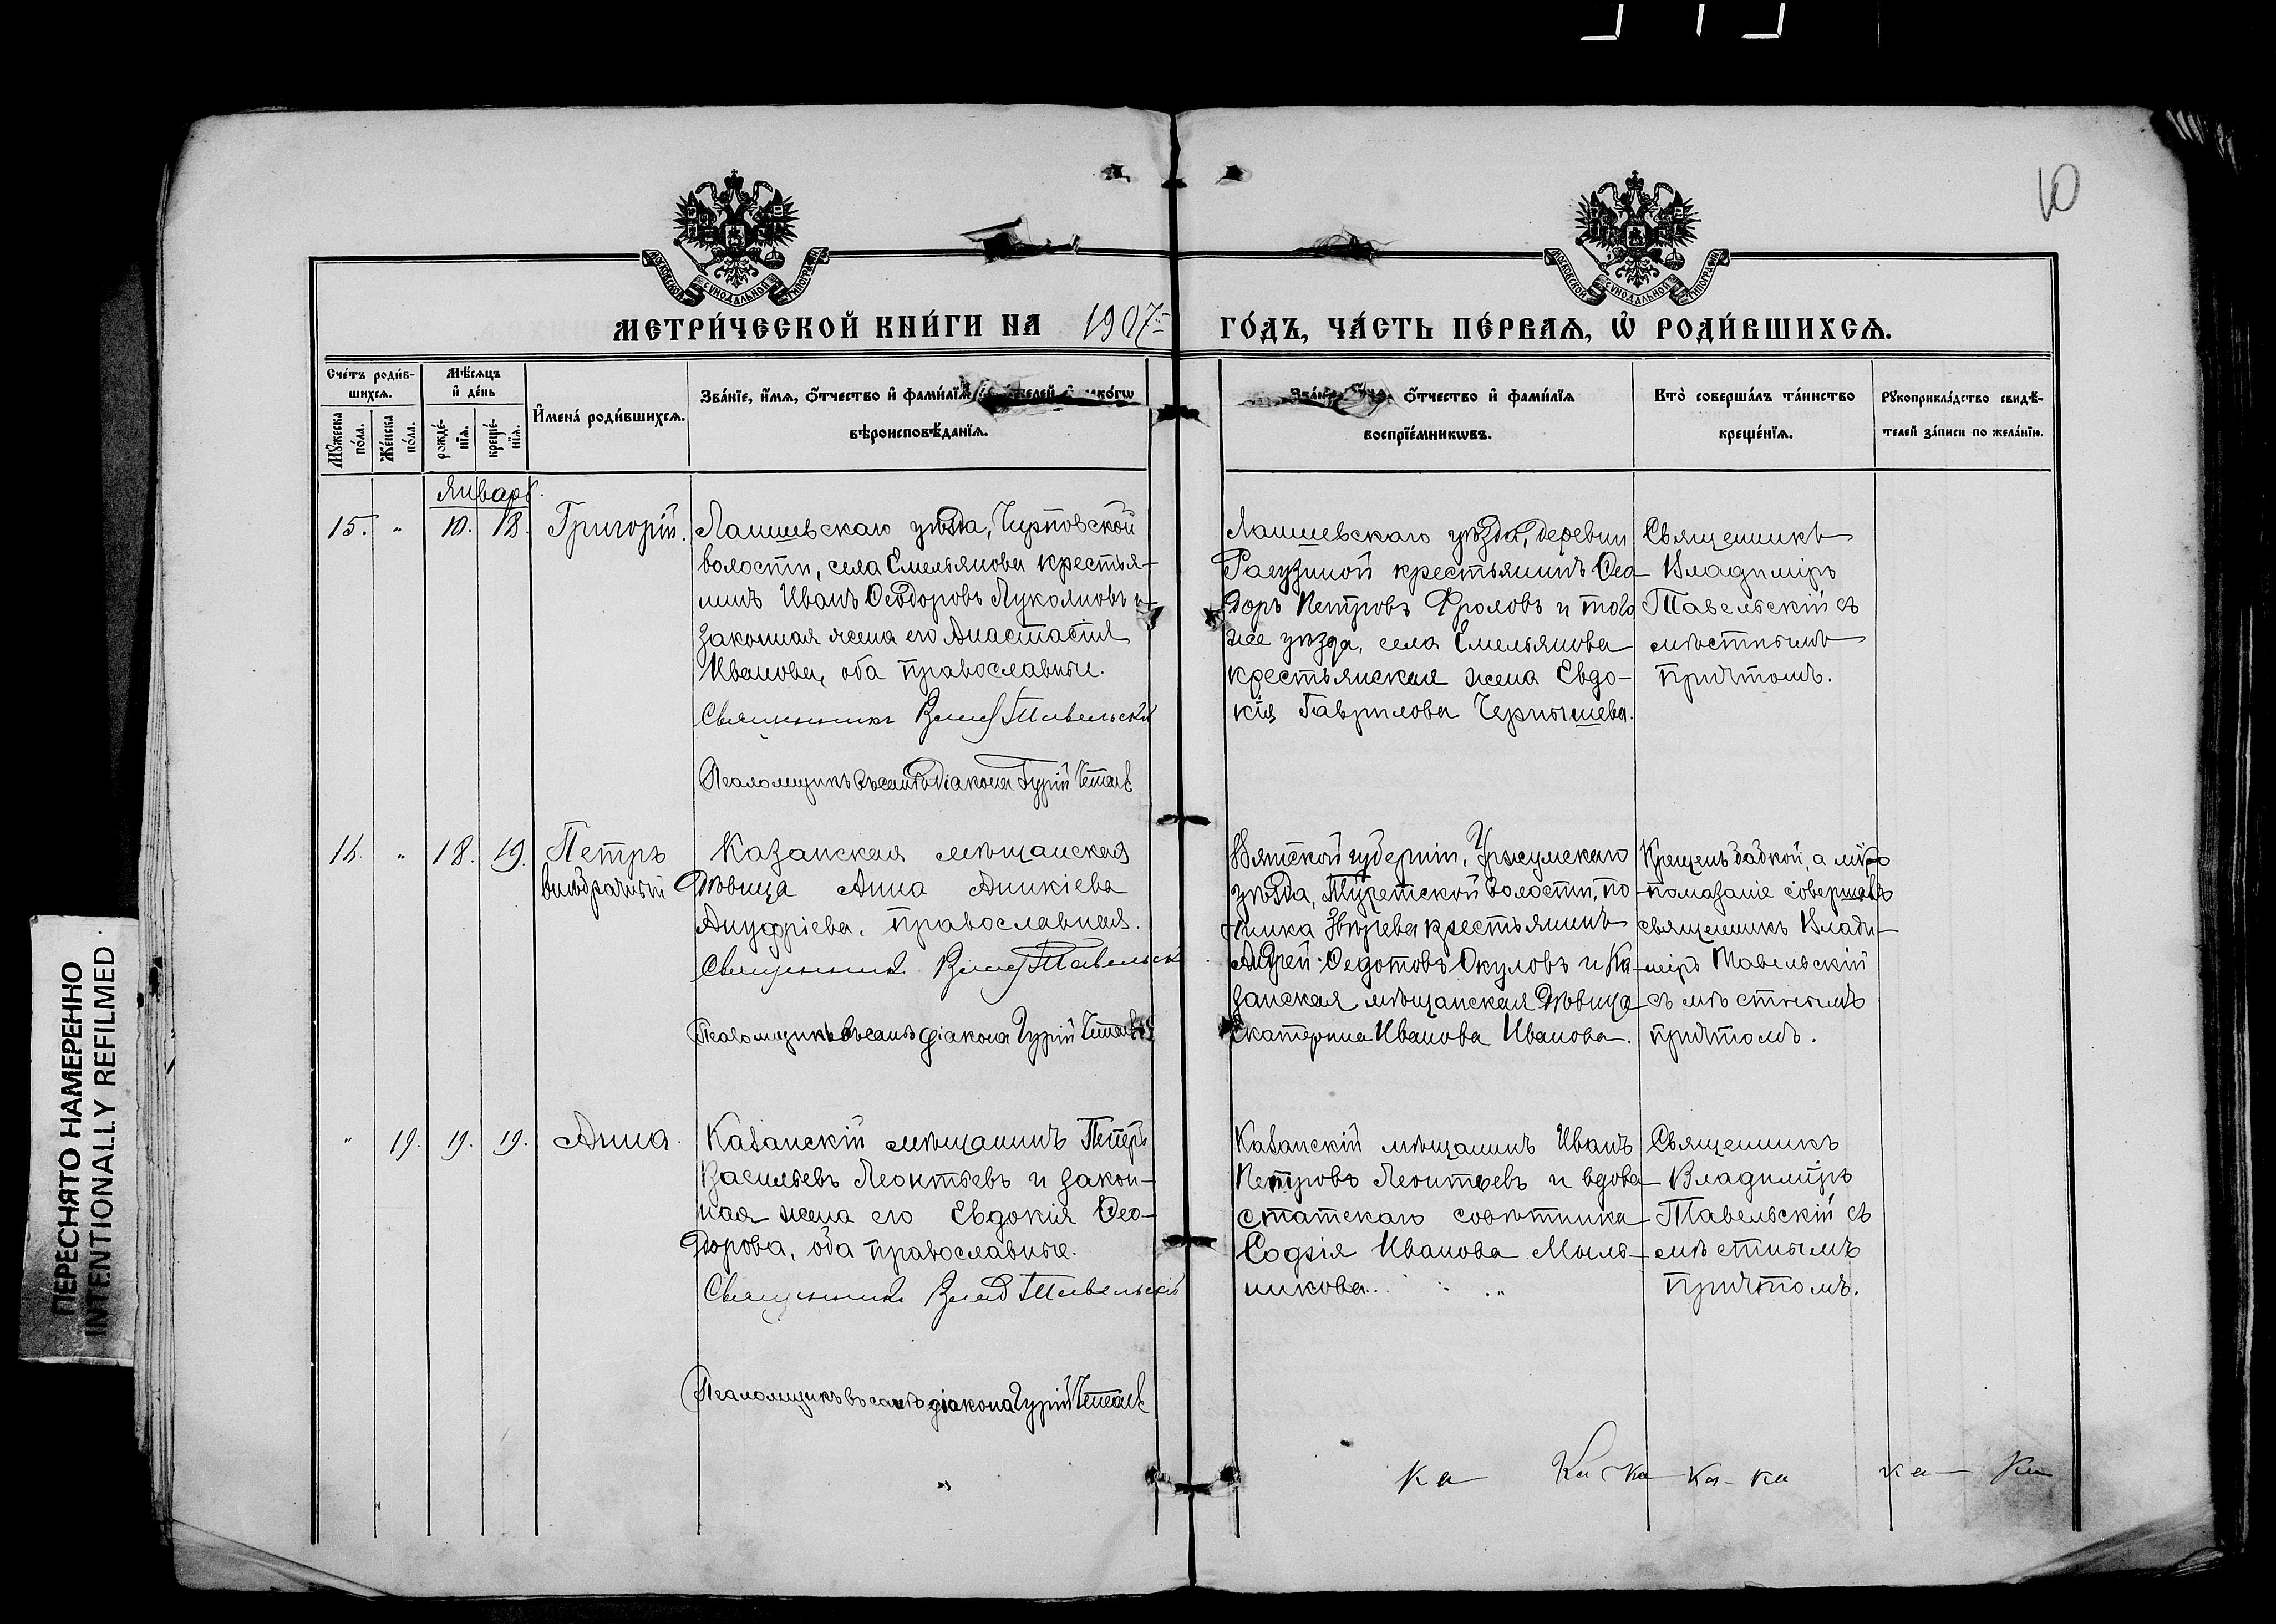 10
МОСКОВСКОЙ СѴНОДАЛЬНОЙ ТИПОГРАФІИ
МОСКОВСКОЙ СѴНОДАЛЬНОЙ ТИПОГРАФІИ
МЕТРИ́ЧЕСКОЙ КНИ́ГИ НА 1907 ГО́ДЪ, ЧА́СТЬ ПЕ́РВАѦ, Ѡ҆ РОДИ́ВШИХСѦ.
Сче́тъ роди́в-
шихсѧ.
Мꙋ́жеска по́ла.
Же́нска по́ла.
Мѣ́сѧцъ
и҆ де́нь
рожде́-
нїѧ.
креще́-
нїѧ.
И҆мена̀ роди́вшихсѧ.
Зва́нїе, и҆́мѧ, ѻ҆́тчество и҆ фами́лїѧ
вѣроисповѣ́данїѧ.
ѻ҆́тчество и҆ фами́лїѧ
воспрїе́мникѡвъ.
Кто̀ соверша́лъ та́инство
креще́нїѧ.
Рꙋкоприкла́дство свидѣ́-
телей за́писи по жела́нїю.
Январь.
15. " 10. 18. Григорій.
Лаишевскаго уѣзда, Чирповской
волости, села Емельянова крестья-
нинъ Иванъ Ѳеодоровъ Лукояновъ и
законная жена его Анастасія
Иванова, оба православные.
Священникъ Влад Тавельскій
Псаломщикъ въ санѣ діакона Гурій
Лаишевскаго уѣзда, деревни
Рагузиной крестьянинъ Ѳео-
доръ Петровъ Фроловъ и того
же уѣзда, села Емельянова
крестьянская жена Евдо-
кія Гаврилова Чернышева.
Священникъ
Владиміръ
Тавельскій съ
мѣстнымъ
причтомъ.
16. " 18. 19. Петръ
внѣбрачный
Казанская мѣщанская
дѣвица Анна Аникіева
Ануфріева, православная.
Священникъ Влад Тавельскій
Псаломщикъ въ санѣ діакона Гурій
Вятской губерніи, Уржумскаго
уѣзда, Турекской волости, по-
чинка Звѣрева крестьянинъ
Андрей Ѳедотовъ Окуловъ и Ка-
занская мѣщанская дѣвица
Екатерина Иванова Иванова.
Крещенъ бабкой, а мѵро-
помазаніе совершалъ
священникъ Влади-
міръ Тавельскій
съ мѣстнымъ
причтомъ.
" 19. 19. 19. Анна.
Казанскій мѣщанинъ Петръ
Васильевъ Леонтьевъ и закон-
ная жена его Евдокія Ѳео-
дорова, оба православные.
Священникъ Влад Тавельскій
Псаломщикъ въ санѣ діакона Гурій
Казанскій мѣщанинъ Иванъ
Петровъ Леонтьевъ и вдова
статскаго совѣтника
Софія Иванова Мыль-
никова.
Священникъ
Владиміръ
Тавельскій съ
мѣстнымъ
причтомъ.
ка ка ка ка - ка ка ка
ПЕРЕСНЯТО НАМЕРЕННО
INTENTIONALLY REFILMED.